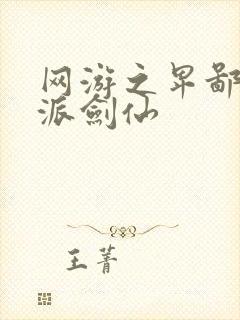 网游之卑鄙
派劍仙
王菁